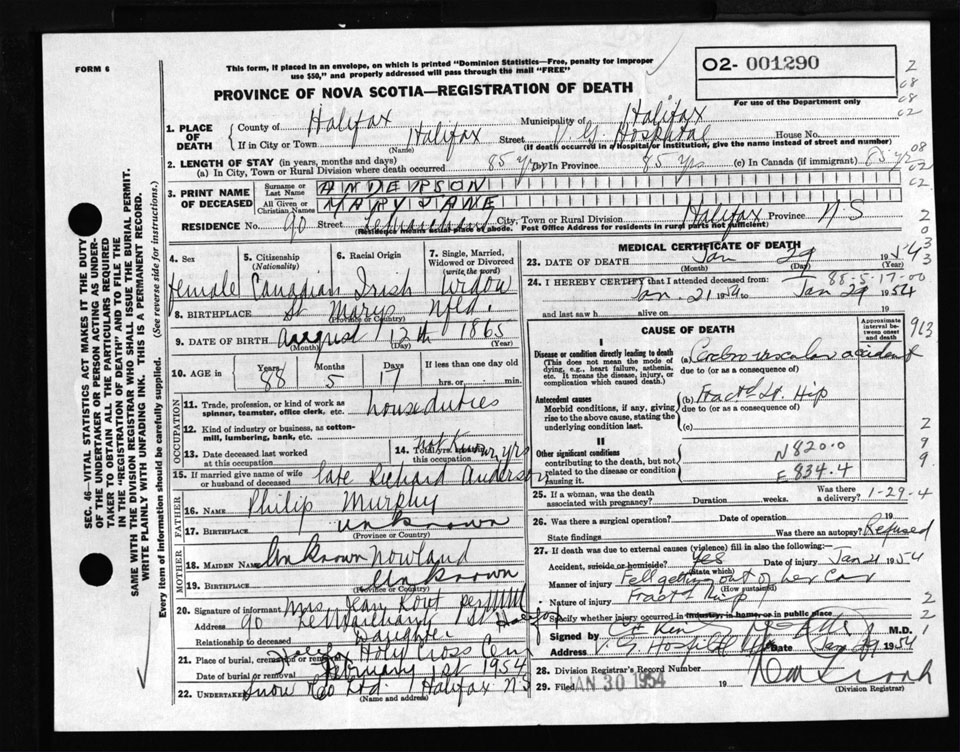 FORM 6
This form, if placed in an envelope, on which is printed "Dominion Statistics—Free, penalty for improper
use $50," and properly addressed will pass through the mail "FREE"
O2- 001290
For use of the Department only
PROVINCE OF NOVA SCOTIA—REGISTRATION OF DEATH
1. PLACE OF DEATH
County of Halifax Municipality of Halifax
If in City or Town Halifax Street V. G. Hospital House No.
(Name) (If death occurred in a hospital or institution, give the name instead of street and number)
2. LENGTH OF STAY (in years, months and days)
(a) In City, Town or Rural Division where death occurred 85 yrs (b) In Province 85 yrs (c) In Canada (if immigrant) 85 yrs
3. PRINT NAME OF DECEASED
Surname or Last Name ANDERSON
All Given or Christian Names MARY JANE
RESIDENCE No. 90 Street LeMarchant City, Town or Rural Division Halifax Province N.S
(Residence means usual place of abode. Post Office Address for residents in rural parts not sufficient)
4. Sex Female
5. Citizenship (Nationality) Canadian
6. Racial Origin Irish
7. Single, Married, Widowed or Divorced (write the word) Widow
8. BIRTHPLACE St Marys Nfld.
(Province or Country)
9. DATE OF BIRTH August 12th 1865
(Month) (Day) (Year)
10. AGE in Years 88 Months 5 Days 17 If less than one day hrs. or min.
OCCUPATION
11. Trade, profession, or kind of work as spinner, teamster, office clerk, etc. house duties
12. Kind of industry or business, as cotton-mill, lumbering, bank, etc.
13. Date deceased last worked at this occupation
14. Total yrs. spent in this occupation not known yrs
15. If married give name of wife or husband of deceased late Richard Anderson
FATHER
16. NAME Philip Murphy
17. BIRTHPLACE unknown
(Province or Country)
MOTHER
18. MAIDEN NAME Unknown Nowland
19. BIRTHPLACE Unknown
(Province or Country)
20. Signature of informant Mrs. Jean per
Address 90 LeMarchant St Halifax
Relationship to deceased Daughter
21. Place of burial, cremation or removal Halifax Holy Cross Cem
Date of burial or removal February 1st 1954
22. Undertaker Snow & Co Ltd. Halifax N.S
(Name and address)
MEDICAL CERTIFICATE OF DEATH
23. DATE OF DEATH Jan 29 1954
(Month) (Day) (Year)
88-5-17-00
24. I HEREBY CERTIFY that I attended deceased from:
Jan. 21 1954 to Jan 29 1954
and last saw h alive on 19
CAUSE OF DEATH
Approximate interval between onset and death
I
Disease or condition directly leading to death
(This does not mean the mode of dying, e.g., heart failure, asthenia, etc. It means the disease, injury, or complication which caused death.)
(a) Cerebro vascular accident
due to (or as a consequence of)
Antecedent causes
Morbid conditions, if any, giving rise to the above cause, stating the underlying condition last.
(b) Fract'd Lt. Hip
due to (or as a consequence of)
(c)
II
Other significant conditions
contributing to the death, but not related to the disease or condition causing it.
N820.0
E 834.4
25. If a woman, was the death associated with pregnancy? Duration weeks. Was there a delivery? 1-29-4
26. Was there a surgical operation? Date of operation 19
State findings Was there an autopsy? Refused
27. If death was due to external causes (violence) fill in also the following:—
Accident, suicide or homicide? Yes Date of injury Jan 21 1954
(State which)
Manner of injury Fell getting out of her car
(How sustained)
Nature of injury Fract'd Hip
Specify whether injury occurred in industry, in home, or in public place
Signed by M.D.
Address V. G. Hospital Date Jan 29 1954
28. Division Registrar's Record Number
29. Filed JAN 30 1954
(Division Registrar)
SEC. 46—VITAL STATISTICS ACT MAKES IT THE DUTY
OF THE UNDERTAKER OR PERSON ACTING AS UNDER-
TAKER TO OBTAIN ALL THE PARTICULARS REQUIRED
IN THE "REGISTRATION OF DEATH" AND TO FILE THE
SAME WITH THE DIVISION REGISTRAR WHO SHALL ISSUE THE BURIAL PERMIT.
WRITE PLAINLY WITH UNFADING INK. THIS IS A PERMANENT RECORD.
Every item of information should be carefully supplied. (See reverse side for instructions.)
2
08
08
02
08
02
02
2
0
3
3
913
2
9
9
2
2